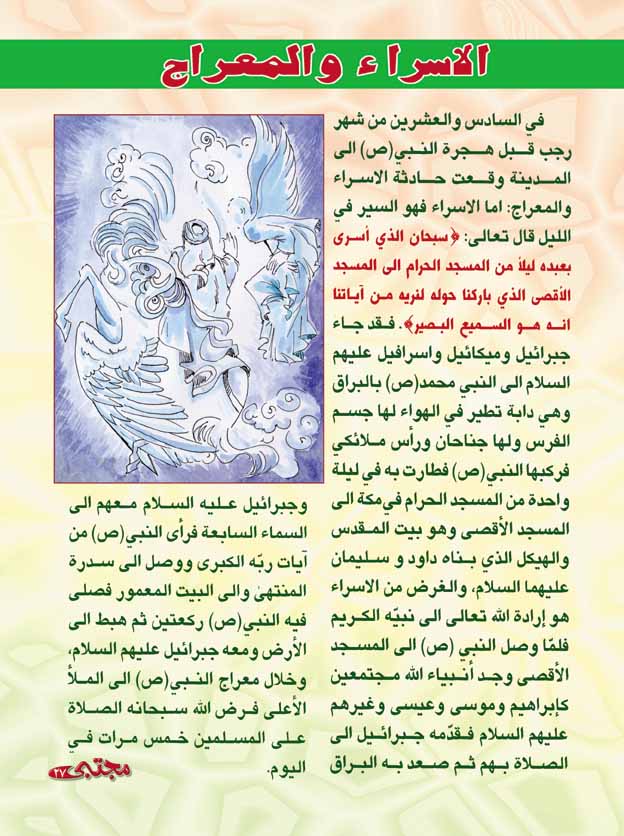 الاسراء والمعراج
في السادس والعشرين من شهر
رجب قبل هجرة النبي(ص) الى
المدينة وقعت حادثة الاسراء
والمعراج: اما الاسراء فهو السير في
الليل قال تعالى: ﴿سبحان الذي أسرى
بعبده ليلاً من المسجد الحرام الى المسجد
الأقصى الذي باركنا حوله لنريه من آياتنا
انه هو السميع البصير﴾. فقد جاء
جبرائيل وميكائيل واسرافيل عليهم
السلام الى النبي محمد(ص) بالبراق
وهي دابة تطير في الهواء لها جسم
الفرس ولها جناحان ورأس ملائكي
فركبها النبي(ص) فطارت به في ليلة
واحدة من المسجد الحرام في مكة الى
المسجد الأقصى وهو بيت المقدس
والهيكل الذي بناه داود و سليمان
عليهما السلام، والغرض من الاسراء
هو إرادة الله تعالى الى نبيّه الكريم
فلمّا وصل النبي (ص) الى المسجد
الأقصى وجد أنبياء الله مجتمعين
كإبراهيم وموسى وعيسى وغيرهم
عليهم السلام فقدّمه جبرائيل الى
الصلاة بهم ثم صعد به البراق
وجبرائيل عليه السلام معهم الى
السماء السابعة فرأى النبي(ص) من
آيات ربّه الكبرى ووصل الى سدرة
المنتهىٰ والى البيت المعمور فصلى
فيه النبي(ص) ركعتين ثم هبط الى
الأرض ومعه جبرائيل عليهم السلام،
وخلال معراج النبي(ص) الى الملأ
الأعلى فرض الله سبحانه الصلاة
على المسلمين خمس مرات في
اليوم.
مجتبى ٢٧